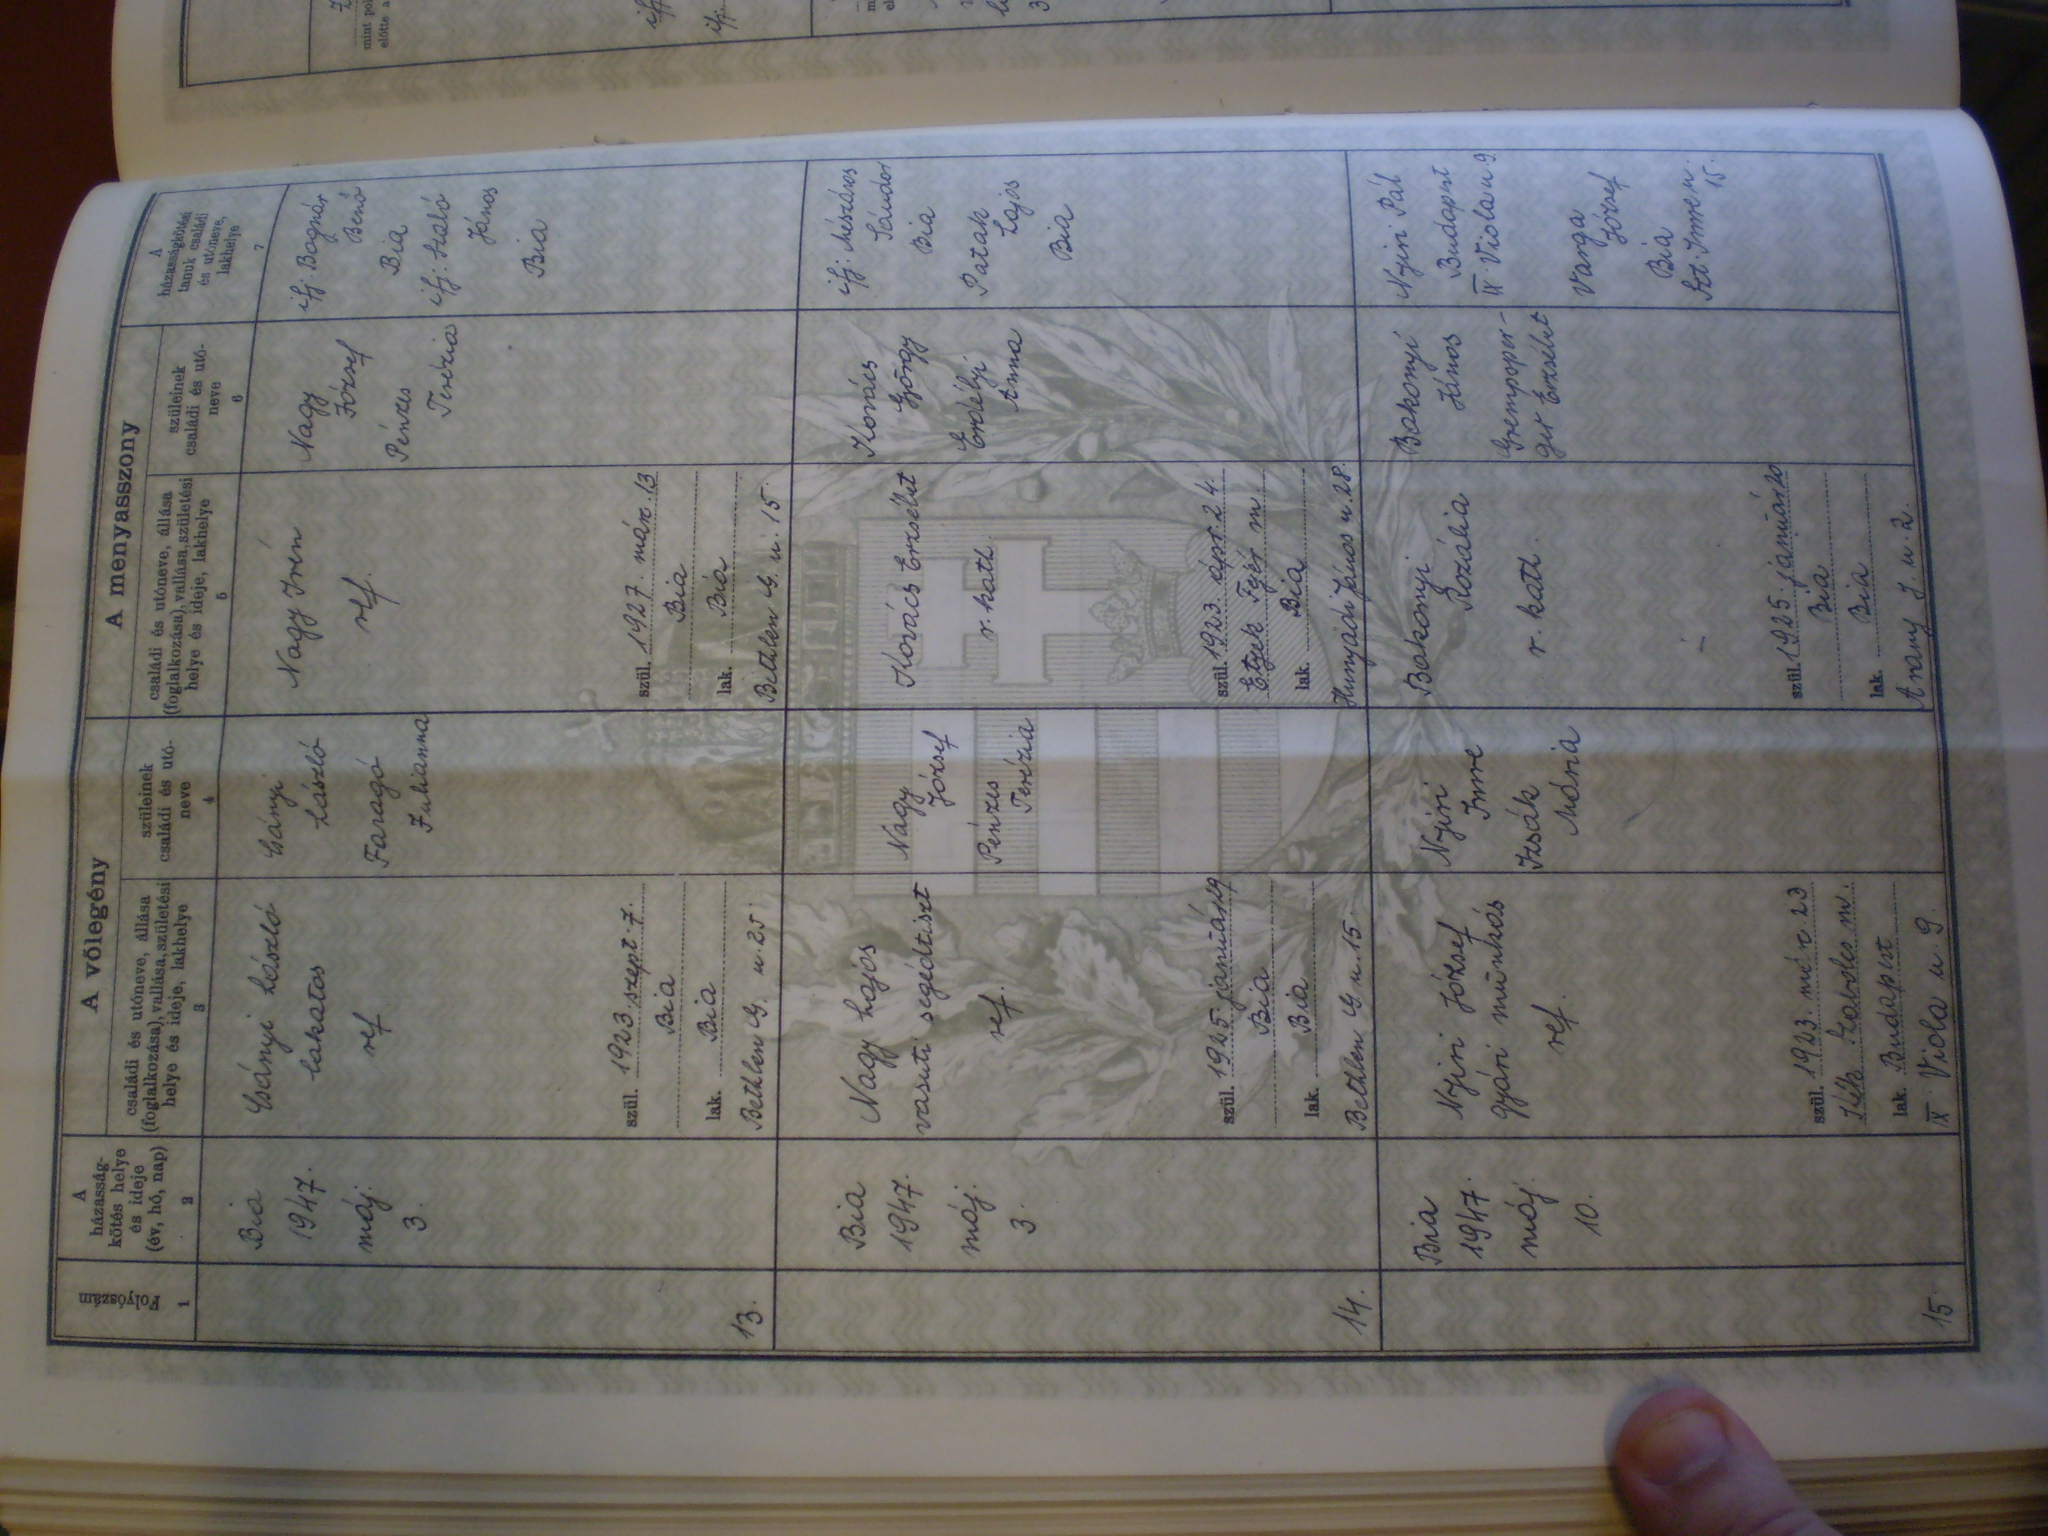 A
házasság-
kötés helye
és ideje
(év, hó, nap)
Folyószám
A vőlegény
családi és utóneve, állása
(foglalkozása), vallása, születési
helye és ideje, lakhelye
szüleinek
családi és utó-
neve
A menyasszony
családi és utóneve, állása
(foglalkozása), vallása, születési
helye és ideje, lakhelye
szüleinek
családi és utó-
neve
A
házasságkötési
tanuk családi
és utóneve,
lakhelye
1
2
3
4
5
6
7
13.
Bia
1947.
máj.
3.
Csányi László
lakatos
ref.
szül. 1923. szept. 7.
Bia
lak. Bia
Bethlen G. u. 25.
Csányi
László
Faragó
Julianna
Nagy Irén
ref.
szül. 1927. már. 13
Bia
lak. Bia
Bethlen G. u. 15.
Nagy
József
Pénzes
Terézia
ifj. Bognár
Benő
Bia
ifj. Szaló
János
Bia
14.
Bia
1947.
máj.
3.
Nagy Lajos
vasuti segédtiszt
ref.
szül. 1925. január 19
Bia
lak. Bia
Bethlen G. u. 15.
Nagy
József
Pénzes
Terézia
Kovács Erzsébet
r. kath.
szül. 1923. ápr. 24.
Etyek Fejér m.
lak. Bia
Hunyadi János u. 28.
Kovács
György
Erdélyi
Anna
ifj. Mészáros
Sándor
Bia
Patak
Lajos
Bia
15.
Bia
1947.
máj.
10.
Nyiri József
gyári munkás
ref.
szül. 1923. már. 23
Kék Szabolcs m.
lak. Budapest
IX. Viola u. 9.
Nyiri
Imre
Izsák
Mária
Bakonyi
Rozália
r. kath.
-
szül. 1925. január 20
Bia
lak. Bia
Arany J. u. 2.
Bakonyi
János
Grempsper-
ger Erzsébet
Nyiri Pál
Budapest
IX. Viola u. 9
Varga
József
Bia
Szt. Imre u.
15.
mint
előtte a